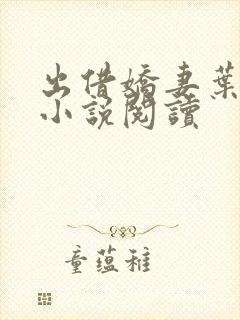 出借嬌妻葉
小說閱讀
童蘊稚